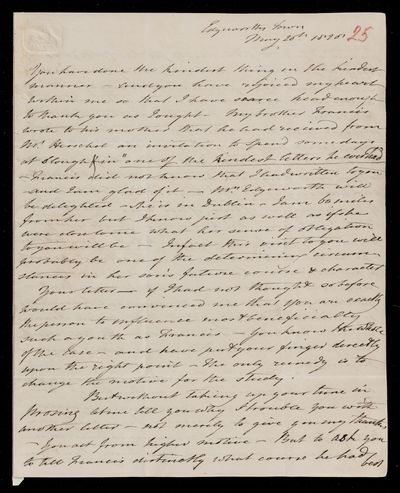 Edgeworths Town
May 26th 1828
25
You have done the kindest thing in the kindest
manner – and you have rejoiced my heart
within me so that I have scarce head enough
to thank you as I ought – My brother Francis
wrote to his mother that he had received from
Mr. Herschel an invitation to spend some days
at Slough (in "one of the kindest letters he ever had")
– Francis did not know that I had written to you
– and I am glad of it – Mrs Edgeworth will
be delighted – she is in Dublin – I am 60 miles
from her but I know just as well as if she
were close to me what her sense of obligation
to you will be – In fact this visit to you will
probably be one of the determining circum-
stances in her sons future course & character
Your letter – if I had not thought so before
would have convinced me that you are exactly
the person to influence most beneficially
such a youth as Francis – You know the whole
of the case – and have put your finger directly
upon the right point – The only remedy is to
change the motive for the study.
But without taking up your time in
prosing let me tell you why I trouble you with
another letter – not merely to give you my thanks
– You act from higher motive – But to ask you
to tell Francis distinctly what course he had
best